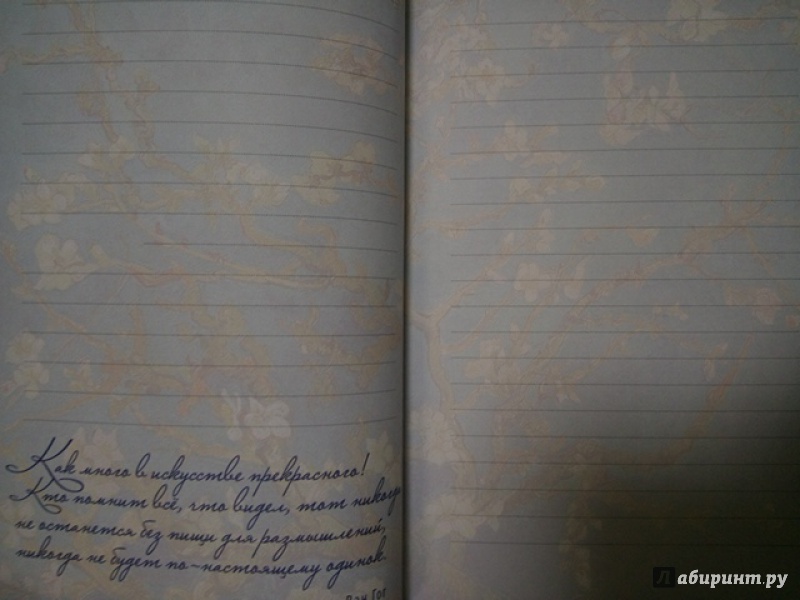 Как много в искусстве прекрасного!
Кто помнит всё, что видел, тот никогда
не останется без пищи для размышлений,
никогда не будет по-настоящему одинок.
Ван Гог
Лабиринт.ру